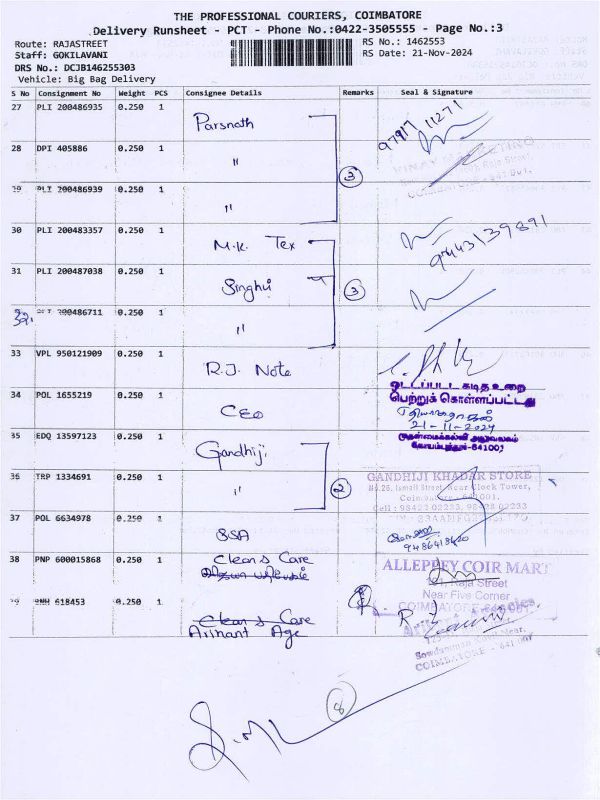 THE PROFESSIONAL COURIERS, COIMBATORE
Delivery Runsheet - PCT - Phone No.:0422-3505555 - Page No.:3
Route: RAJASTREET
RS No.: 1462553
Staff: GOKILAVANI
RS Date: 21-Nov-2024
DRS No.: DCJB146255303
Vehicle: Big Bag Delivery
S No Consignment No Weight PCS Consignee Details Remarks Seal & Signature
27 PLI 200486935 0.250 1 Parsnath
97917 11271
28 DPI 405886 0.250 1 "
3
29 PLI 200486939 0.250 1 "
30 PLI 200483357 0.250 1 M.K. Tex
9443139891
31 PLI 200487038 0.250 1 Singhvi
3
32. 200486711 0.250 1 "
33 VPL 950121909 0.250 1 R.J. Note
ஒட்டப்பட்ட கடித உறை
பெற்றுக் கொள்ளப்பட்டது
34 POL 1655219 0.250 1 CEO
21-11-2024
முதன்மைக்கல்வி அலுவலகம்
கோயம்புத்தூர்-641001
35 EDQ 13597123 0.250 1 Gandhiji
36 TRP 1334691 0.250 1 "
2
GANDHIJI KHADAR STORE
No.26, Ismail Street, Near Clock Tower,
Coimbatore - 641001.
Cell : 98422 02233, 98428 02233
37 POL 6634978 0.250 1 SSA
9486418420
38 PNP 600015868 0.250 1 Clean & Care
ALLEPPEY COIR MART
Raja Street
Near Five Corner
COIMBATORE
39 618453 0.250 1 Clean & Care
Arihant Age
Sowdamman Covil Near,
COIMBATORE - 641 001
8